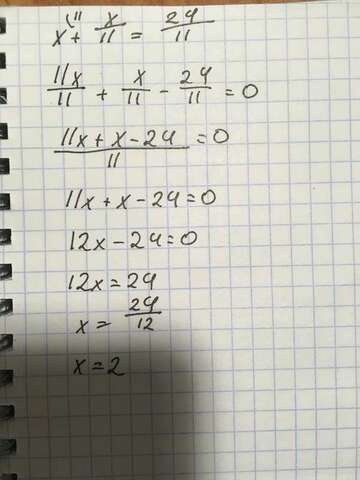 x^{\11} + x/11 = 24/11
11x/11 + x/11 - 24/11 = 0
(11x + x - 24)/11 = 0
11x + x - 24 = 0
12x - 24 = 0
12x = 24
x = 24/12
x = 2